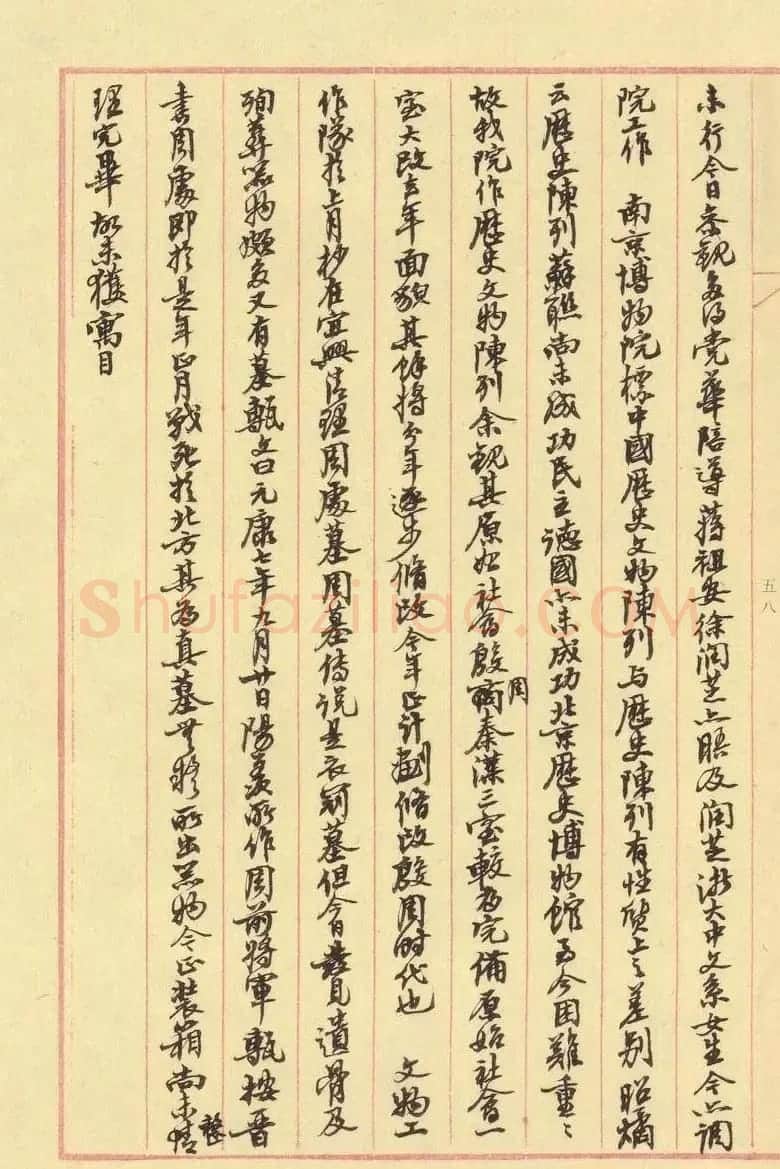 未行今日参观多得党華陪導蒋祖安徐润芝亦晤及润芝浙大中文系女生今亦调
院工作　南京博物院標中國歷史文物陳列与歷史陳列有性质上之差别昭燏
云歷史陳列蘇聯尚未成功民主德國亦未成功北京歷史博物館至今困難重〻
故我院作歷史文物陳列余観其原始社會殷商周秦漢三室較為完備原始社會一
室大改去年面貌其餘將分年逐步修改今年正计劃修改殷周時代也　文物工
作隊於上月抄在宜興清理周處墓周墓傳说是衣冠墓但今日發見遺骨及
殉葬器物頗多又有墓甎文曰元康七年九月廿日陽羨所作周前將軍甎按晋
書周處即於是年正月戰死於北方其為真墓無疑所出器物今正装箱尚未整
理完畢故未獲寓目
五八
Shufaziliao.COM